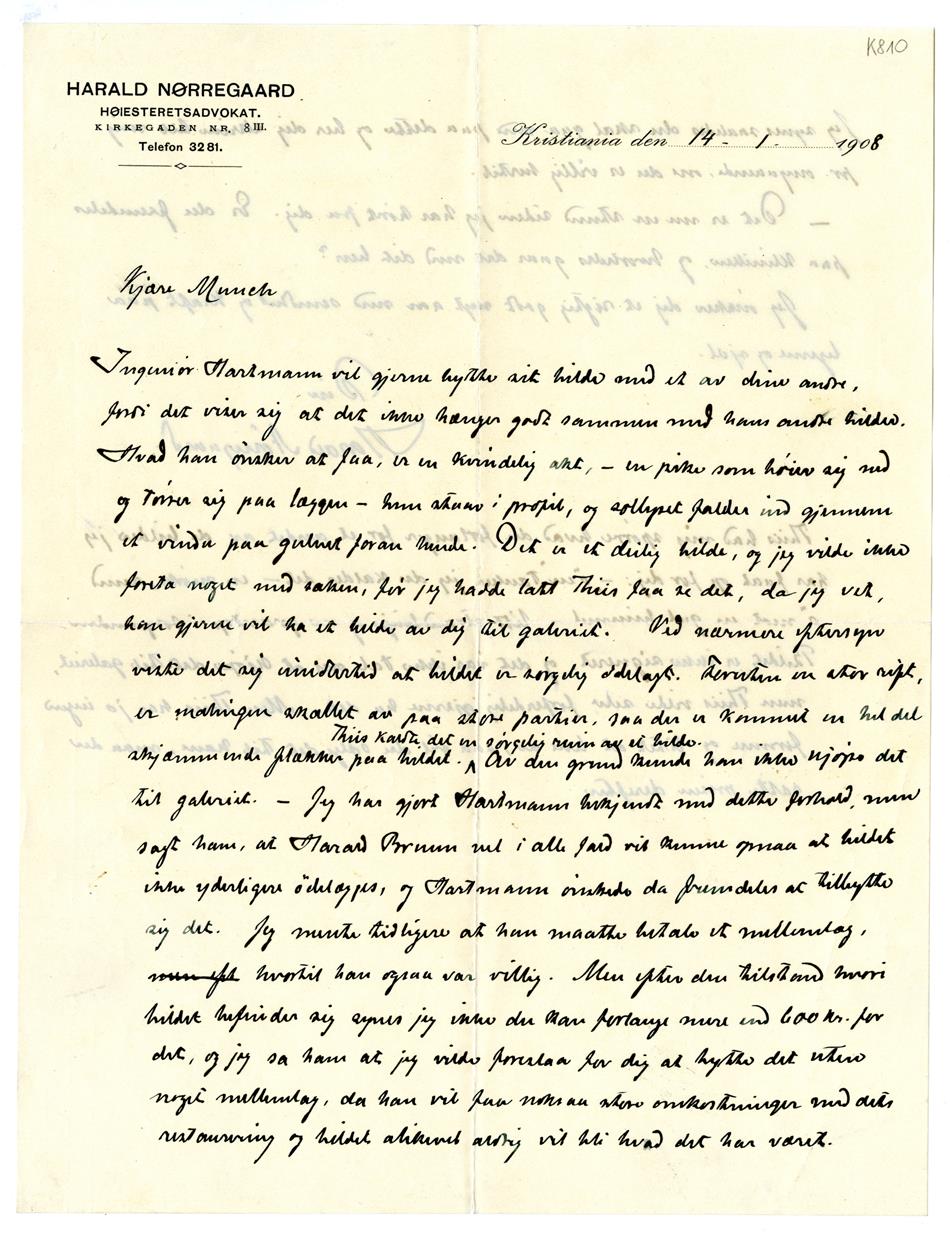 K810
HARALD NØRREGAARD
HØIESTERETSADVOKAT.
KIRKEGADEN NR. 8 III.
Telefon 3281.
Kristiania den 14 - 1. 1908
Kjære Munch
Ingeniør Hartmann vil gjerne bytte sit bilde med et av dine andre,
fordi det viser sig at det ikke hænger godt sammen med hans andre bilder.
Hvad han ønsker at faa, er en kvindelig akt, – en pike som bøier sig ned
og tørrer sig paa læggen – hun staar i profil, og sollyset falder ind gjennem
et vindu paa gulvet foran hende. Det er et deilig bilde, og jeg vilde ikke
foreta noget med saken, før jeg hadde latt Thiis faa se det, da jeg vet,
han gjerne vil ha et bilde av dig til galeriet. Ved nærmere eftersyn
viste det sig imidlertid at bildet er sørgelig ødelagt. Foruten en stor rift,
er malingen skallet av paa store partier, saa der er kommet en hel del
Thiis kaldte det en sørgelig ruin av et bilde.
skjæmmende flækker paa bildet. Av den grund kunde han ikke kjøpe det
til galeriet. – Jeg har gjort Hartmann bekjendt med dette forhold, men
sagt ham, at Harald Bruun vel i alle fald vil kunne opnaa at bildet
ikke yderligere ödelægges, og Hartmann ønskede da fremdeles at tilbytte
sig det. Jeg mente tidligere at han maatte betale et mellemlag,
men eft hvortil han ogsaa var villig. Men efter den tilstand hvori
bildet befinder sig synes jeg ikke du kan forlange mere end 600 kr. for
det, og jeg sa ham at jeg vilde foreslaa for dig at bytte det uten
noget mellemlag, da han vil faa noksaa store omkostninger med dets
restaurering og bildet alikevel aldrig vil bli hvad det har været.